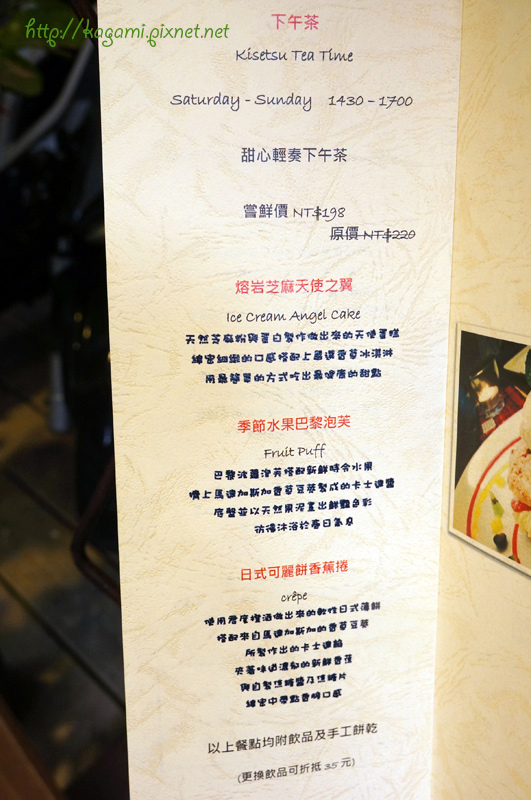 http://kagami.pixnet.net
下午茶
Kisetsu Tea Time
Saturday - Sunday 1430 - 1700
甜心輕奏下午茶
嘗鮮價 NT$198
原價 NT$220
熔岩芝麻天使之翼
Ice Cream Angel Cake
天然芝麻粉與蛋白製作做出來的天使蛋糕
綿密細緻的口感搭配上嚴選香草冰淇淋
用最簡單的方式吃出最健康的甜點
季節水果巴黎泡芙
Fruit Puff
巴黎波蘿泡芙搭配新鮮時令水果
擠上馬達加斯加香草豆莢製成的卡士達醬
底盤並以天然果泥畫出鮮豔色彩
彷彿沐浴於春日氣息
日式可麗餅香蕉捲
crêpe
使用君度橙酒做出來的軟性日式薄餅
搭配來自馬達加斯加的香草豆莢
所製作出的卡士達餡
夾著味道濃郁的新鮮香蕉
與自製焦糖醬及焦糖片
綿密中帶點香脆口感
以上餐點均附飲品及手工餅乾
(更換飲品可折抵 35 元)